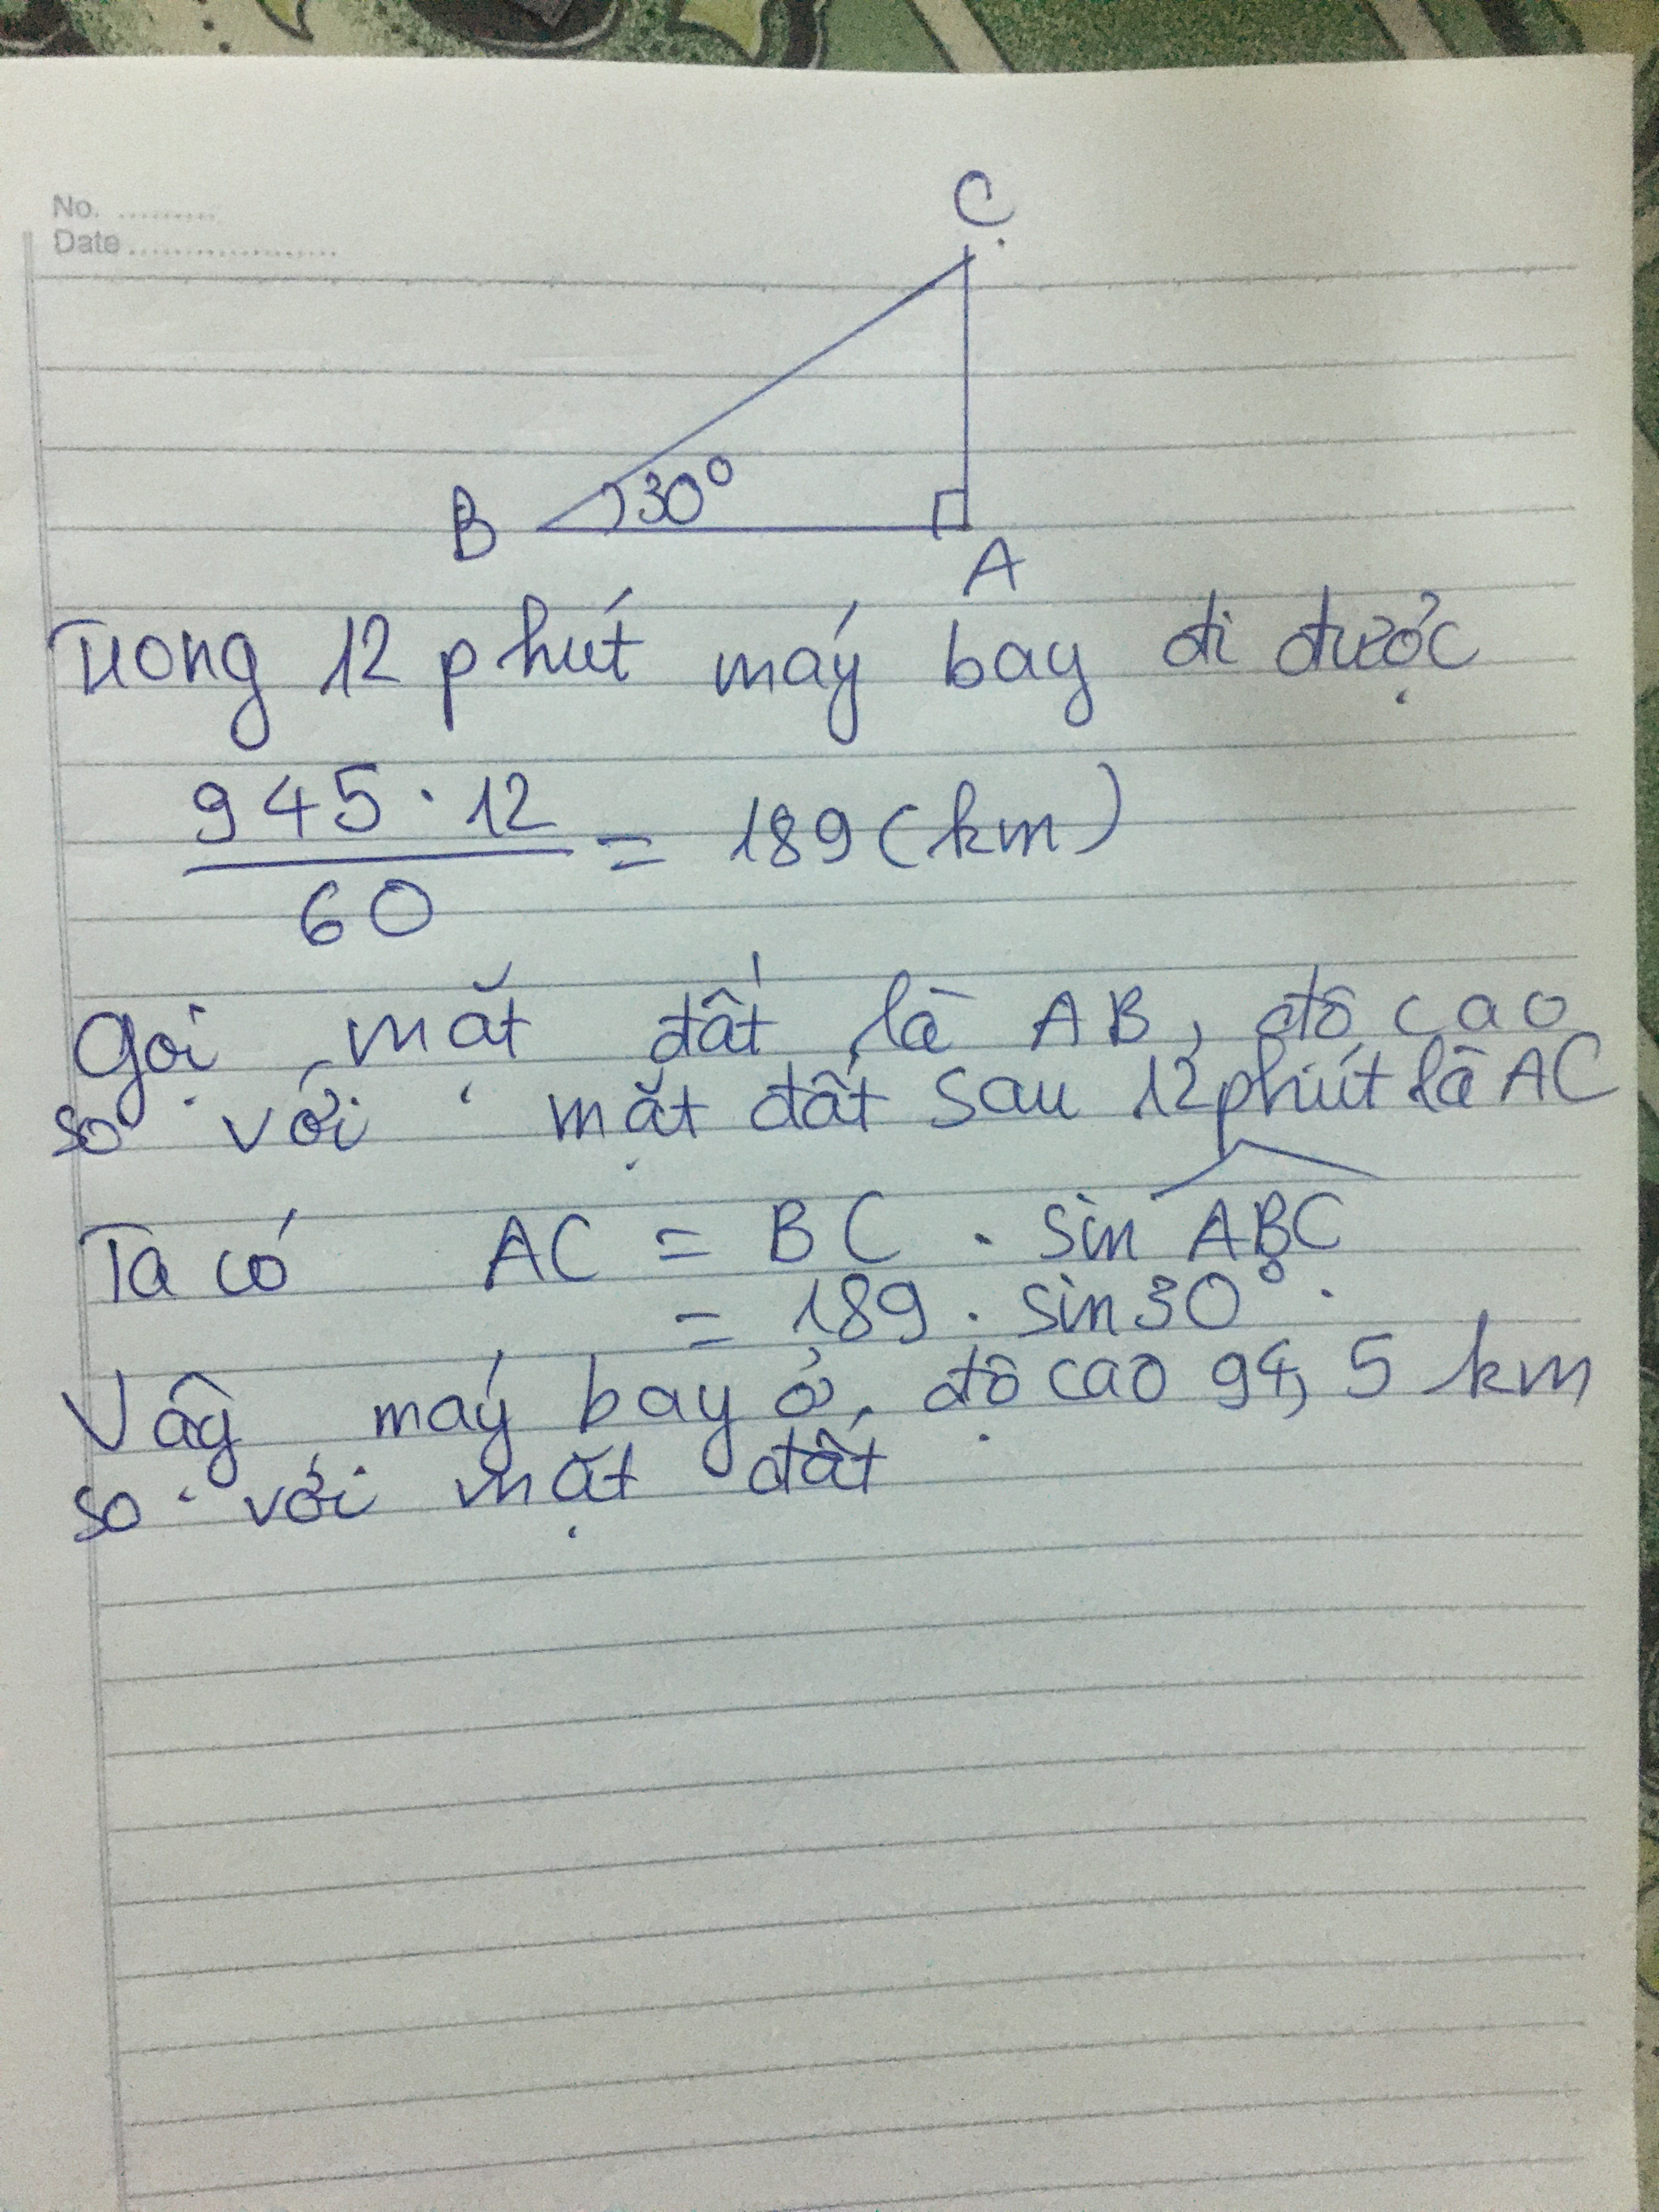 No. .........
Date ....................
C
B 30° A
Trong 12 phút máy bay đi được
945 · 12 / 60 = 189 (km)
Gọi mặt đất là AB, độ cao
so với mặt đất sau 12 phút là AC
Ta có AC = BC . sin ABC
= 189 . sin 30°.
Vậy máy bay ở độ cao 94,5 km
so với mặt đất